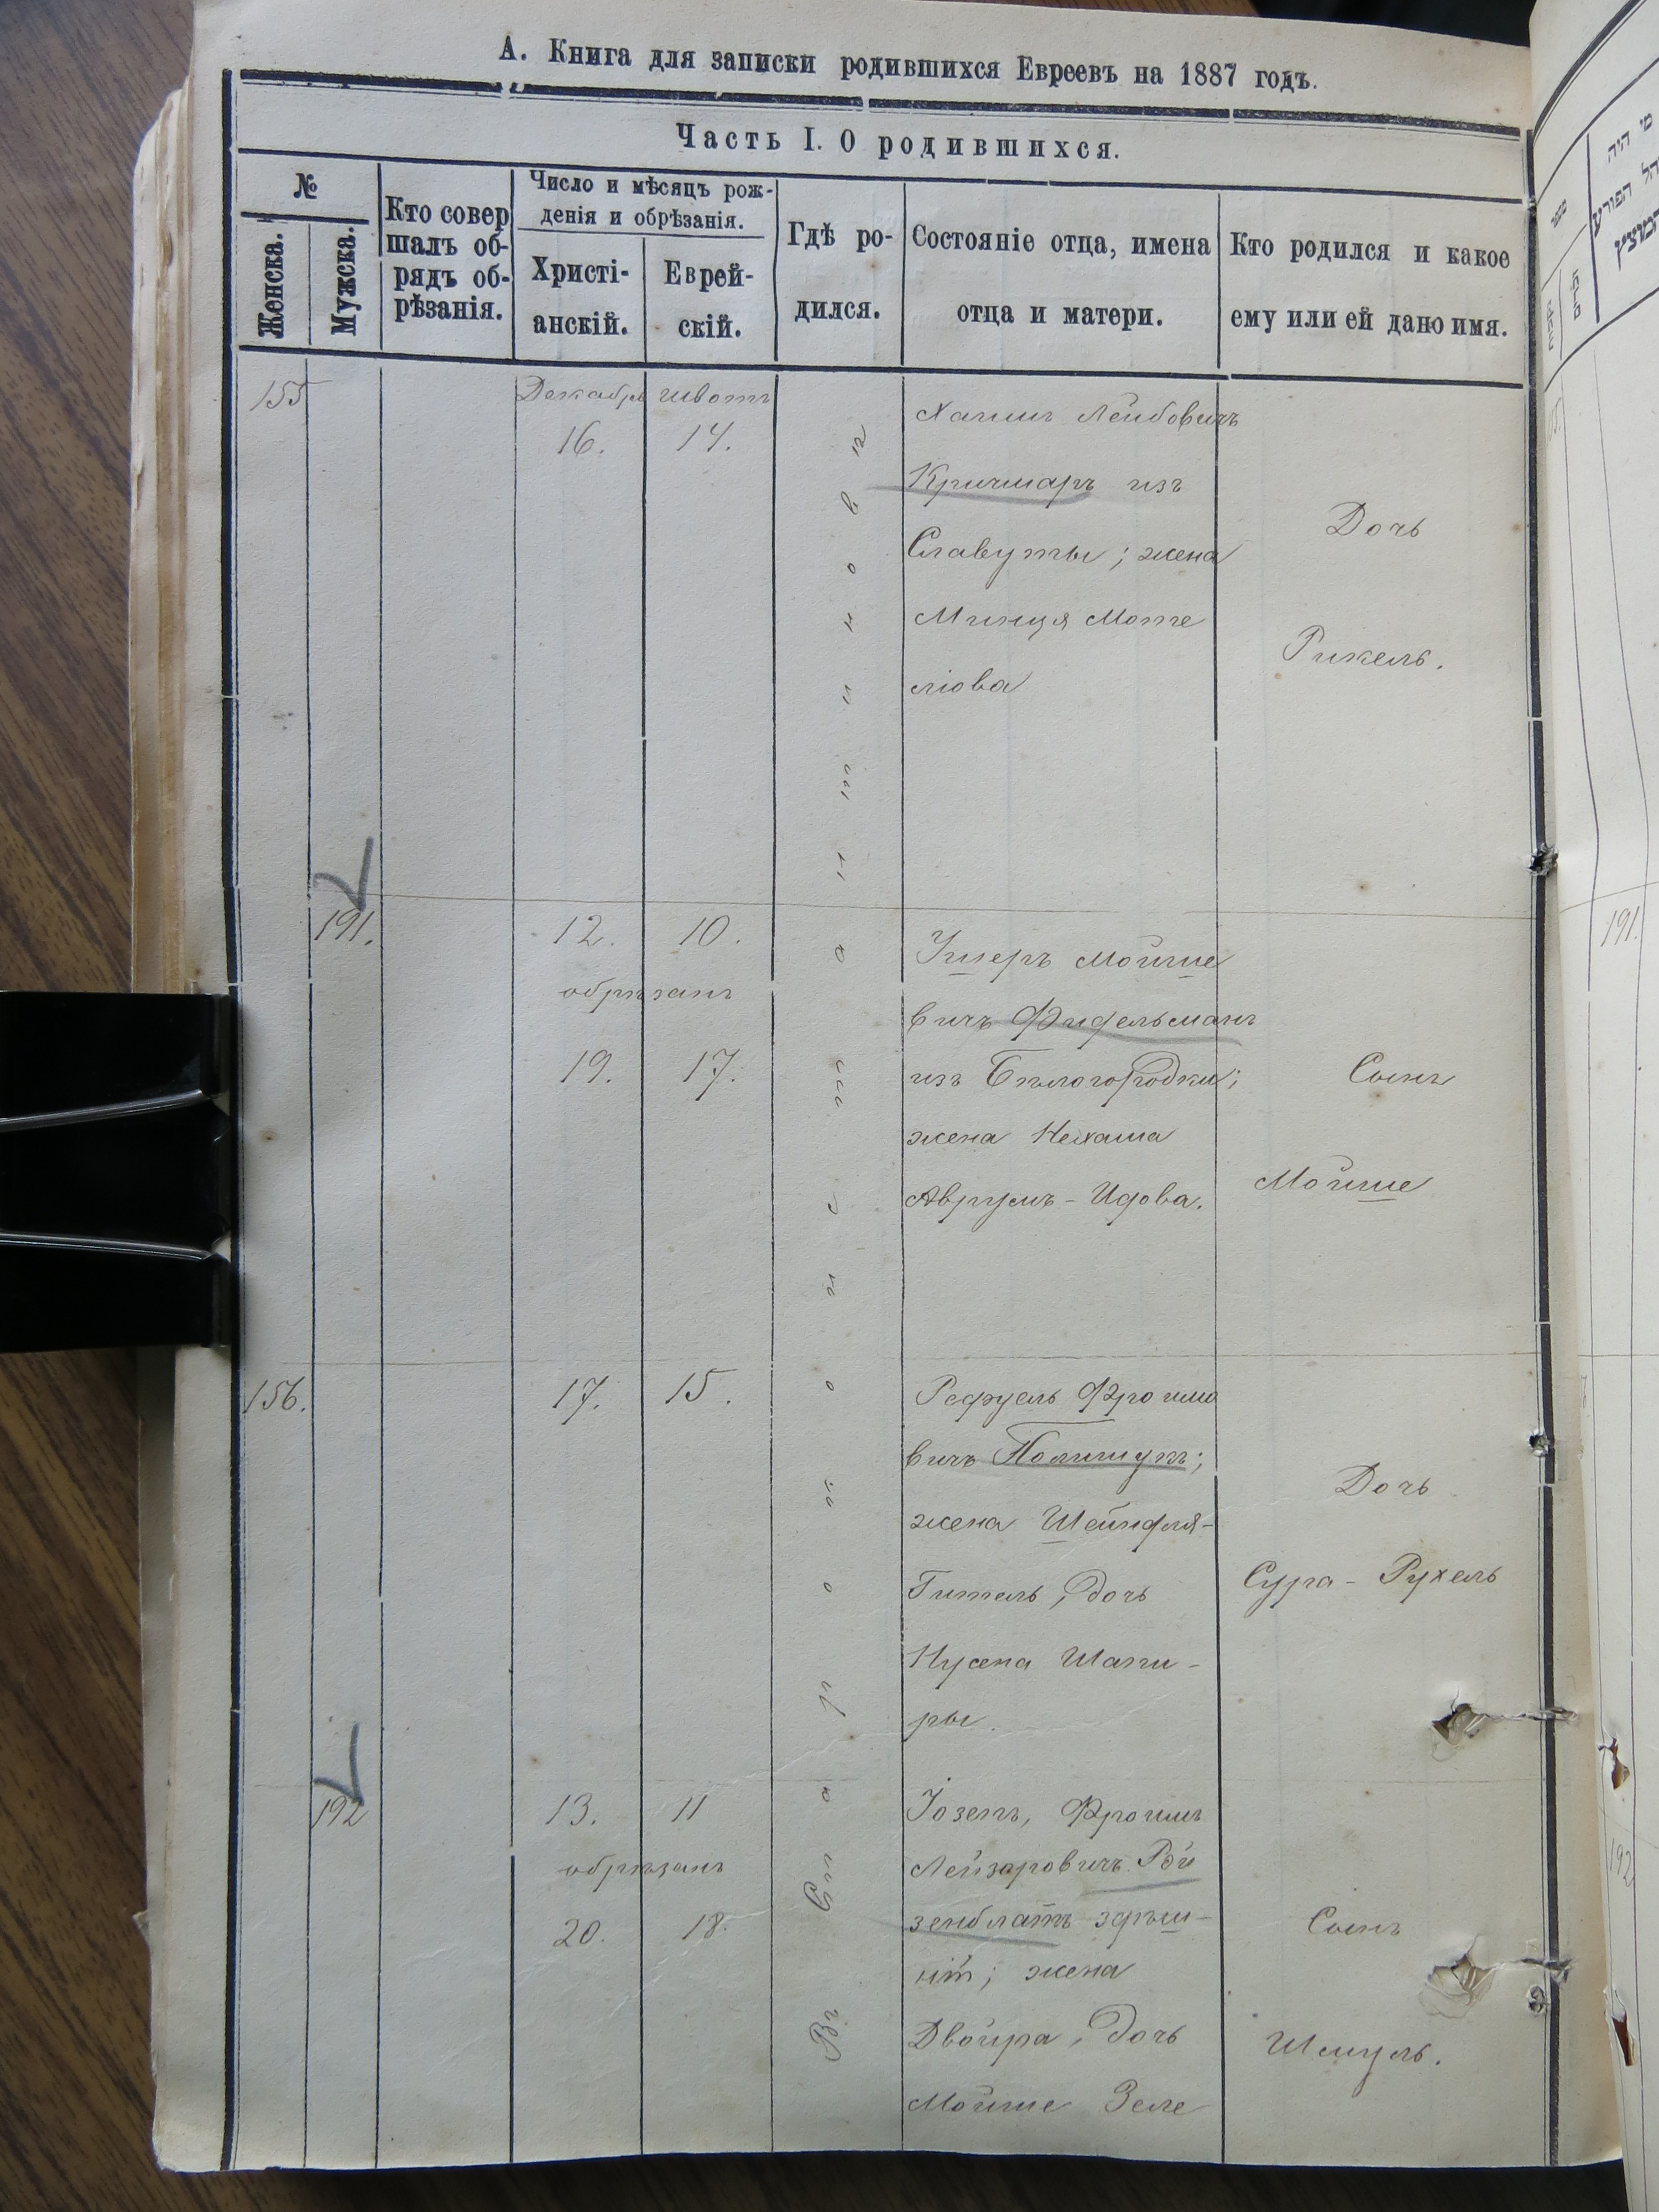 А. Книга для записки родившихся Евреевъ на 1887 годъ.
Часть I. О родившихся.
№
Женска.
Мужска.
Кто совер
шалъ об-
рядъ об-
рѣзанія.
Число и мѣсяцъ рож-
денія и обрѣзанія.
Христі-
анскій.
Еврей-
скій.
Гдѣ ро-
дился.
Состояніе отца, имена
отца и матери.
Кто родился и какое
ему или ей дано имя.
155
Декабрь Швотъ
16. 14.
Хаимъ Лейбовичъ
Кричмаръ изъ
Славуты; жена
Минця Моте
лiова
Дочь
Рикель.
191.
12. 10.
обрѣзанъ
19. 17.
Ушеръ Мойше
вичъ Фидельманъ
изъ Бѣлогородки;
жена Нехама
Аврумъ-Идова.
Сынъ
Мойше
156.
17. 15.
Рефуель Фроимо
вичъ Полищукъ;
жена Шейндля-
Гитель, дочь
Нусена Шапи-
ры.
Дочь
Сура-Рухель
192
13. 11
обрѣзанъ
20. 18.
Іозепъ, Фроимъ
Лейзаровичъ Рой
зенблатъ здѣш-
ній; жена
Двойра, дочь
Мойше Зеле
Сынъ
Шмуль.
191.
192